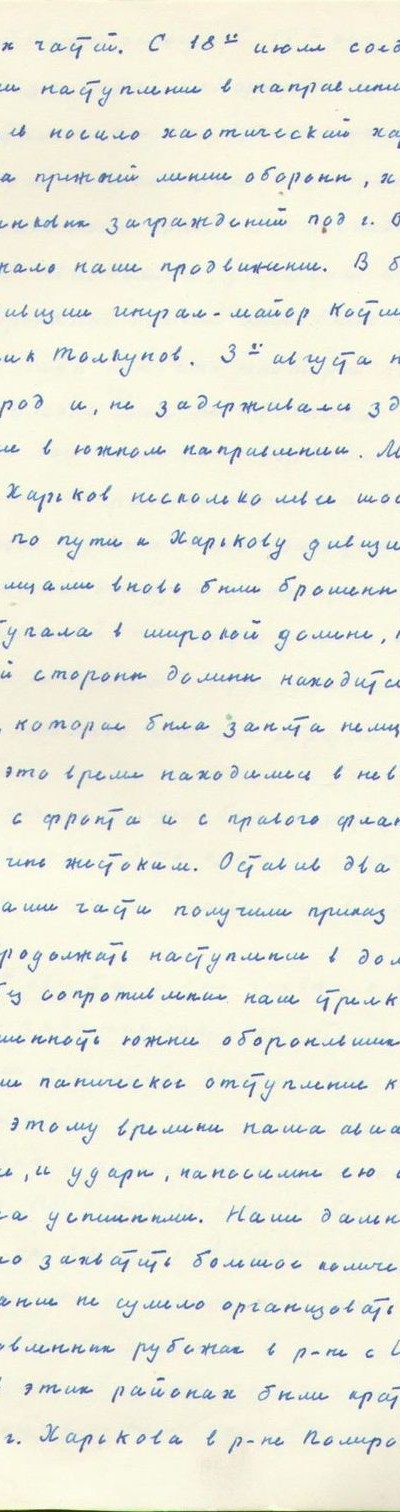 х частей. С 18го июля соед
наступление в направлени
носило хаотический хар
а прежней линии обороны, х
заграждений под г. В
нало наше продвижение. В б
ивции генерал-майор Кости
ик Толкунов. 3го августа н
род и, не задерживаясь зд
ие в южном направлении. М
Харьков несколько левее шос
по пути к Харькову дивизи
мцами вновь были брошены
тупала в широкой долине,
й стороны долины находитс
, которая была занята немц
это время находился в нев
с фронта и с правого флан
чень жестоким. Оставив два
аши части получили приказ
родолжать наступление в дол
без сопротивления наш стрелк
шенность южнее оборонявших
ли паническое отступление к
этому времени наша авиа
и, и удары, наносимые ею
а успешными. Наши дальн
ло захватить большое количе
ание не сумело организовать
овленных рубежах в р-не с
В этих районах были крат
г. Харькова в р-не Полиро